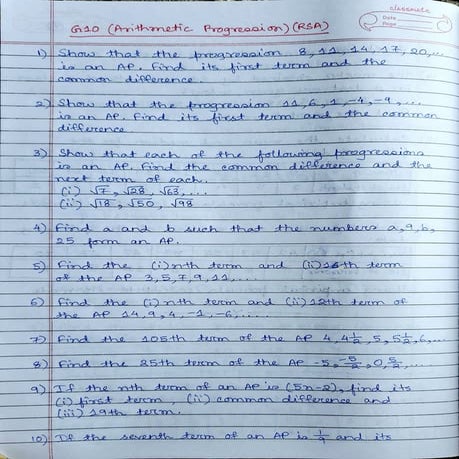 classmate
Date
Page
G10 (Arithmetic Progression) (RSA)
1) Show that the progression 8, 11, 14, 17, 20,...
is an AP. Find its first term and the
common difference.
2) Show that the progression 11, 6, 1, -4, -9,...
is an AP. Find its first term and the common
difference.
3) Show that each of the following progressions
is an AP. Find the common difference and the
next term of each.
(i) √7, √28, √63,...
(ii) √18, √50, √98
4) Find a and b such that the numbers a, 9, b,
25 form an AP.
5) Find the (i) nth term and (ii) 16th term
of the AP 3, 5, 7, 9, 11,...
6) Find the (i) nth term and (ii) 12th term of
the AP 14, 9, 4, -1, -6,...
7) Find the 105th term of the AP 4, 4½, 5, 5½, 6,...
8) Find the 25th term of the AP -5, -5/2, 0, 5/2,...
9) If the nth term of an AP is (5n-2), find its
(i) first term, (ii) common difference and
(iii) 19th term.
10) If the seventh term of an AP is 1/9 and its